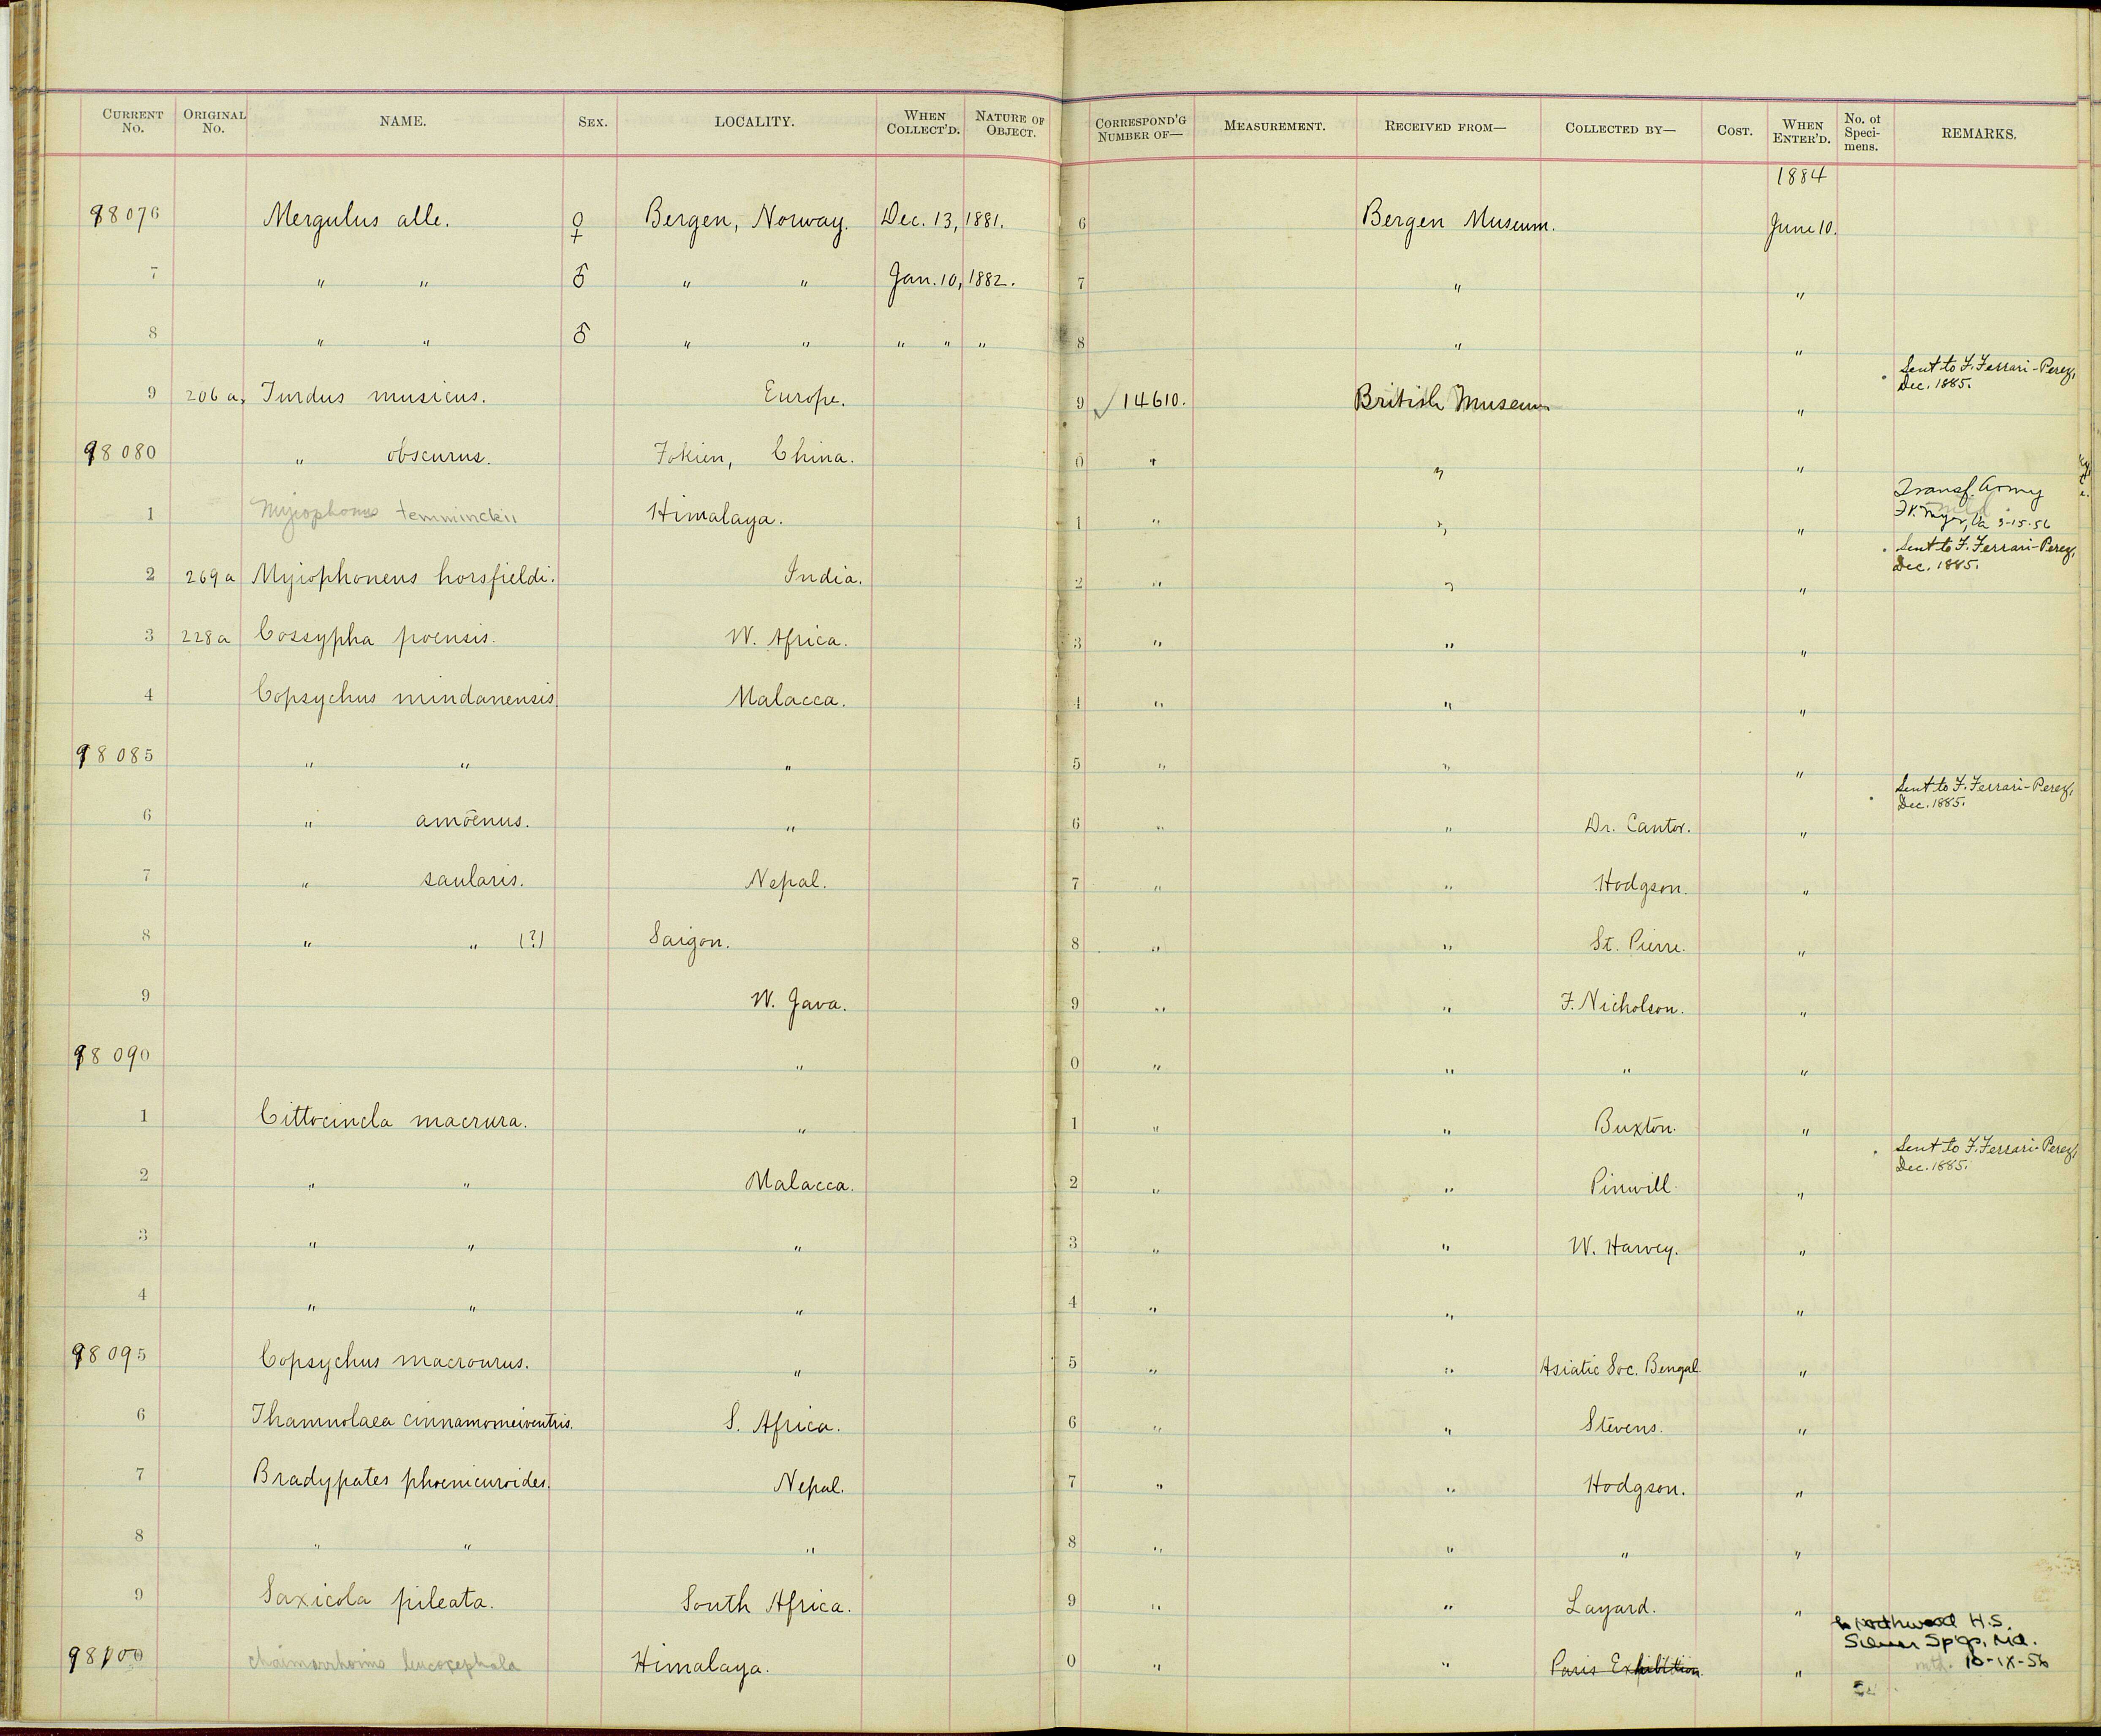 CURRENT No. ORIGINAL No. NAME. SEX. LOCALITY. WHEN COLLECT'D. NATURE OF OBJECT. CORRESPOND'G NUMBER OF— MEASUREMENT. RECEIVED FROM— COLLECTED BY— COST. WHEN ENTER'D. No. of Specimens. REMARKS.
1884
98076 Mergulus alle. ♀ Bergen, Norway. Dec. 13, 1881. 6 Bergen Museum. June 10.
7 " " ♂ " " Jan. 10, 1882. 7 " "
8 " " ♂ " " " " " 8 " "
9 206a, Turdus musicus. Europe. 9 ✓ 14610. British Museum " Sent to F. Ferrari-Perez, Dec. 1885.
98080 " obscurus. Fokien, China. 0 " " "
1 Myiophonus temminckii Himalaya. 1 " " " Transf. Army Ft. Myer, Va 3-15-56
2 269a Myiophoneus horsfieldi. India. 2 " " " Sent to F. Ferrari-Perez, Dec. 1885.
3 228a Cossypha poensis. W. Africa. 3 " " "
4 Copsychus mindanensis Malacca. 4 " " "
98085 " " " 5 " " "
6 " amoenus. " 6 " " Dr. Cantor. " Sent to F. Ferrari-Perez, Dec. 1885.
7 " saularis. Nepal. 7 " " Hodgson. "
8 " " (?) Saigon. 8 " " St. Pierre. "
9 W. Java. 9 " " F. Nicholson. "
98090 " 0 " " " "
1 Cittocincla macrura. " 1 " " Buxton. "
2 " " Malacca. 2 " " Pinwill. " Sent to F. Ferrari-Perez, Dec. 1885.
3 " " " 3 " " W. Harvey. "
4 " " " 4 " " "
98095 Copsychus macrourus. " 5 " " Asiatic Soc. Bengal "
6 Thamnolaea cinnamomeiventris. S. Africa. 6 " " Stevens. "
7 Bradypates phoenicuroides. Nepal. 7 " " Hodgson. "
8 " " " 8 " " " "
9 Saxicola pileata. South Africa. 9 " " Layard. "
98100 Chaimarrhornis leucocephala Himalaya. 0 " " Paris Exhibition " Northwood H.S. Silver Sp'gs, Md. 10-IX-56